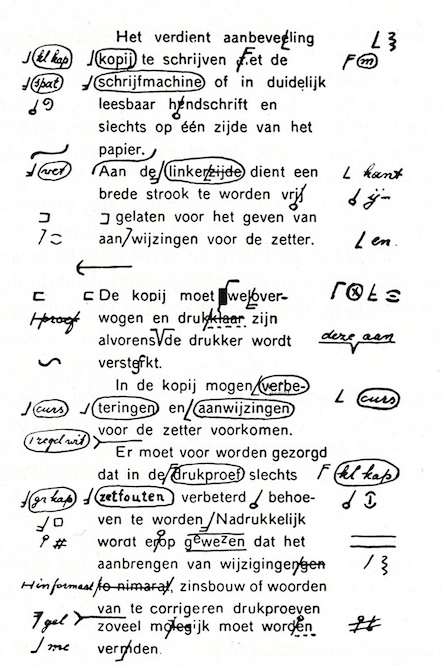 Het verdient aanbeveeling
kl kap kopij te schrijven F.et de F m
spat schrijfmachine of in duidelijk
leesbaar hendschrift en
slechts op één zijde van het
papier.
vet Aan de linkerzijde dient een L kant
brede strook te worden vrij ij
gelaten voor het geven van
aan/wijzingen voor de zetter. L en.
De kopij moet welover-
wogen en drukklaar zijn
proef
alvorens de drukker wordt deze aan
versterkt.
In de kopij mogen verbe- L curs
curs teringen en aanwijzingen
voor de zetter voorkomen.
1 regel wit
Er moet voor worden gezorgd
dat in de drukproef slechts F kl kap
gr kap zetfouten verbeterd behoe-
ven te worden Nadrukkelijk
# wordt erop gewezen dat het
aanbrengen van wijzigingengen
informaat to nimarat, zinsbouw of woorden
van te corrigeren drukproeven
gel zoveel molegijk moet worden
me verniden.